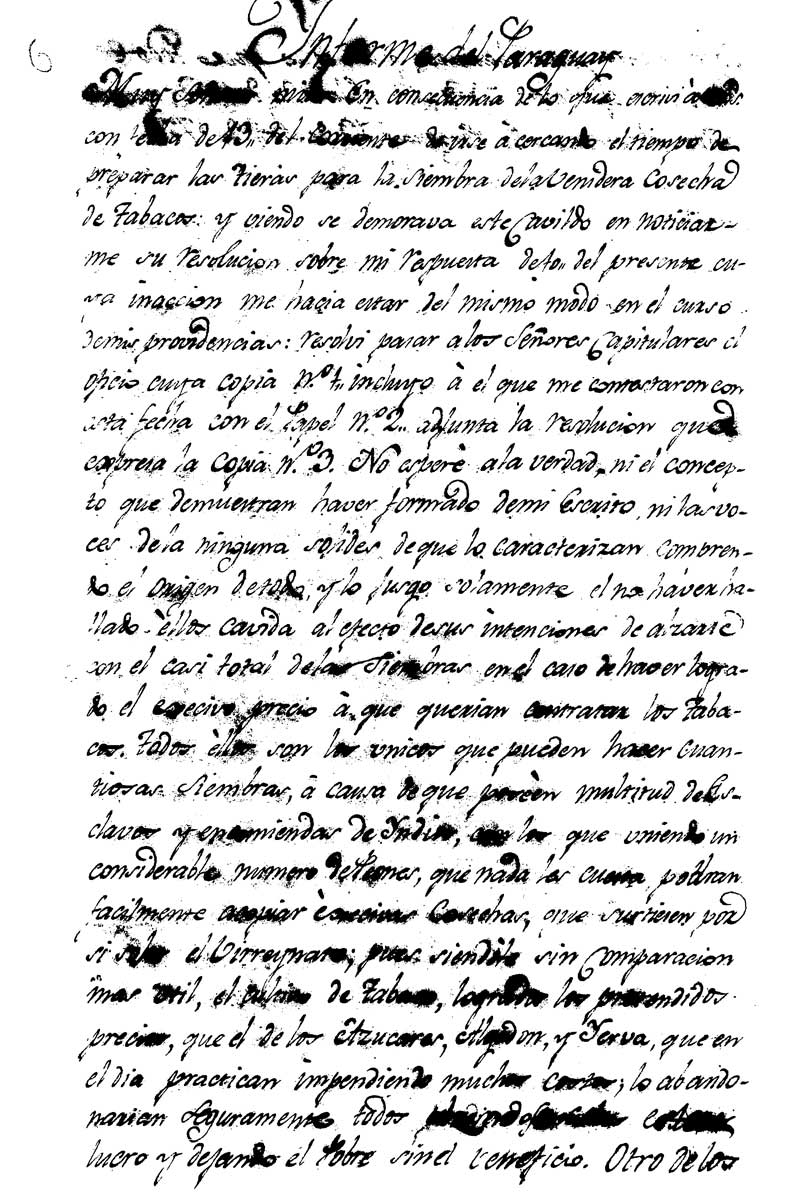 6
Informe del Paraguay
Muy Señor mio En consequencia de lo que escrivi à
con fecha de 13,, del Corriente de irse à cercando el tiempo de
preparar las tieras para la Siembra dela Venidera Cosecha
de Tabacos: y viendo se demorava este Cavildo en noticiar-
me su resolucion sobre mi respuesta de 10,, del presente cu-
ya inaccion me hacia estar del mismo modo en el curso
demis providencias: resolvi pasar alos Señores Capitulares el
oficio cuya copia N.º 1,, incluyo à el que me contestaron con
esta fecha con el Papel N.º 2,, adjunta la resolucion que
expresa la Copia N.º 3. No esperè ala verdad, ni el concep-
to que demuestran haver formado demi Escrito, ni las vo-
ces dela ninguna solides de que lo caracterizan compren-
do el origen de todo, y lo jusgo solamente el no haver ha-
llado èllos cavida al efecto desus intenciones de alzarse
con el casi total de las Siembras en el caso de haver logra-
do el excecivo precio à que querian contratar los Taba-
cos. Todos èllos son los unicos que pueden hacer cuan-
tiosas Siembras, à causa de que poseèn multitud de Es-
clavos y encomiendas de Yndios, con los que uniendo un
considerable numero de Peones, que nada les cuesta podran
facilmente acopiar èxcecivas Cosechas, que surtiesen por
si solos el Virreynato; pues siendoles sin Comparacion
mas util, el cultivo de Tabaco, logrados los pretendidos
precios, que el de los Azucares, Algodon, y Yerva, que en
el dia practican impendiendo muchos costos; lo abando-
narian seguramente todos
lucro y dejando el Pobre sin el beneficio. Otro de los